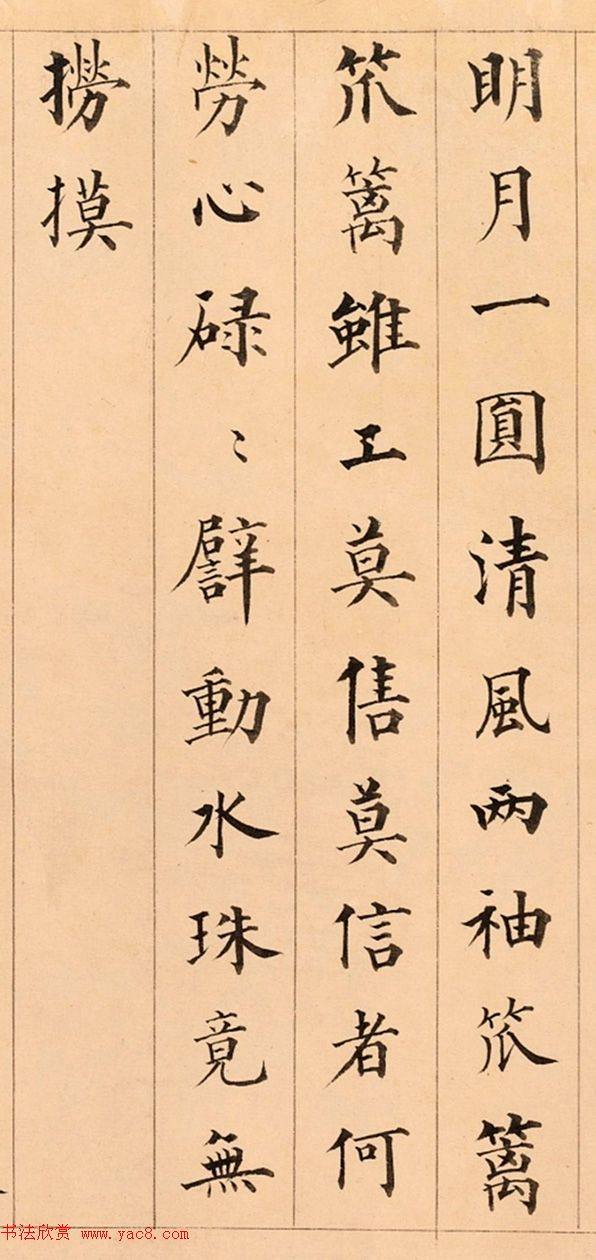 明月一圓清風兩袖笊籬
笊籬雖工莫售莫信者何
勞心碌〻劈動水珠竟無
撈摸
书法欣赏 www.yac8.com